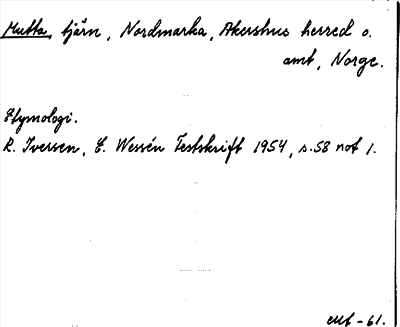 Mutta, tjärn, Nordmarka, Akershus herred o.
amt, Norge.
Etymologi.
R. Iversen, E. Wessén Festskrift 1954, s.58 not 1.
-61.